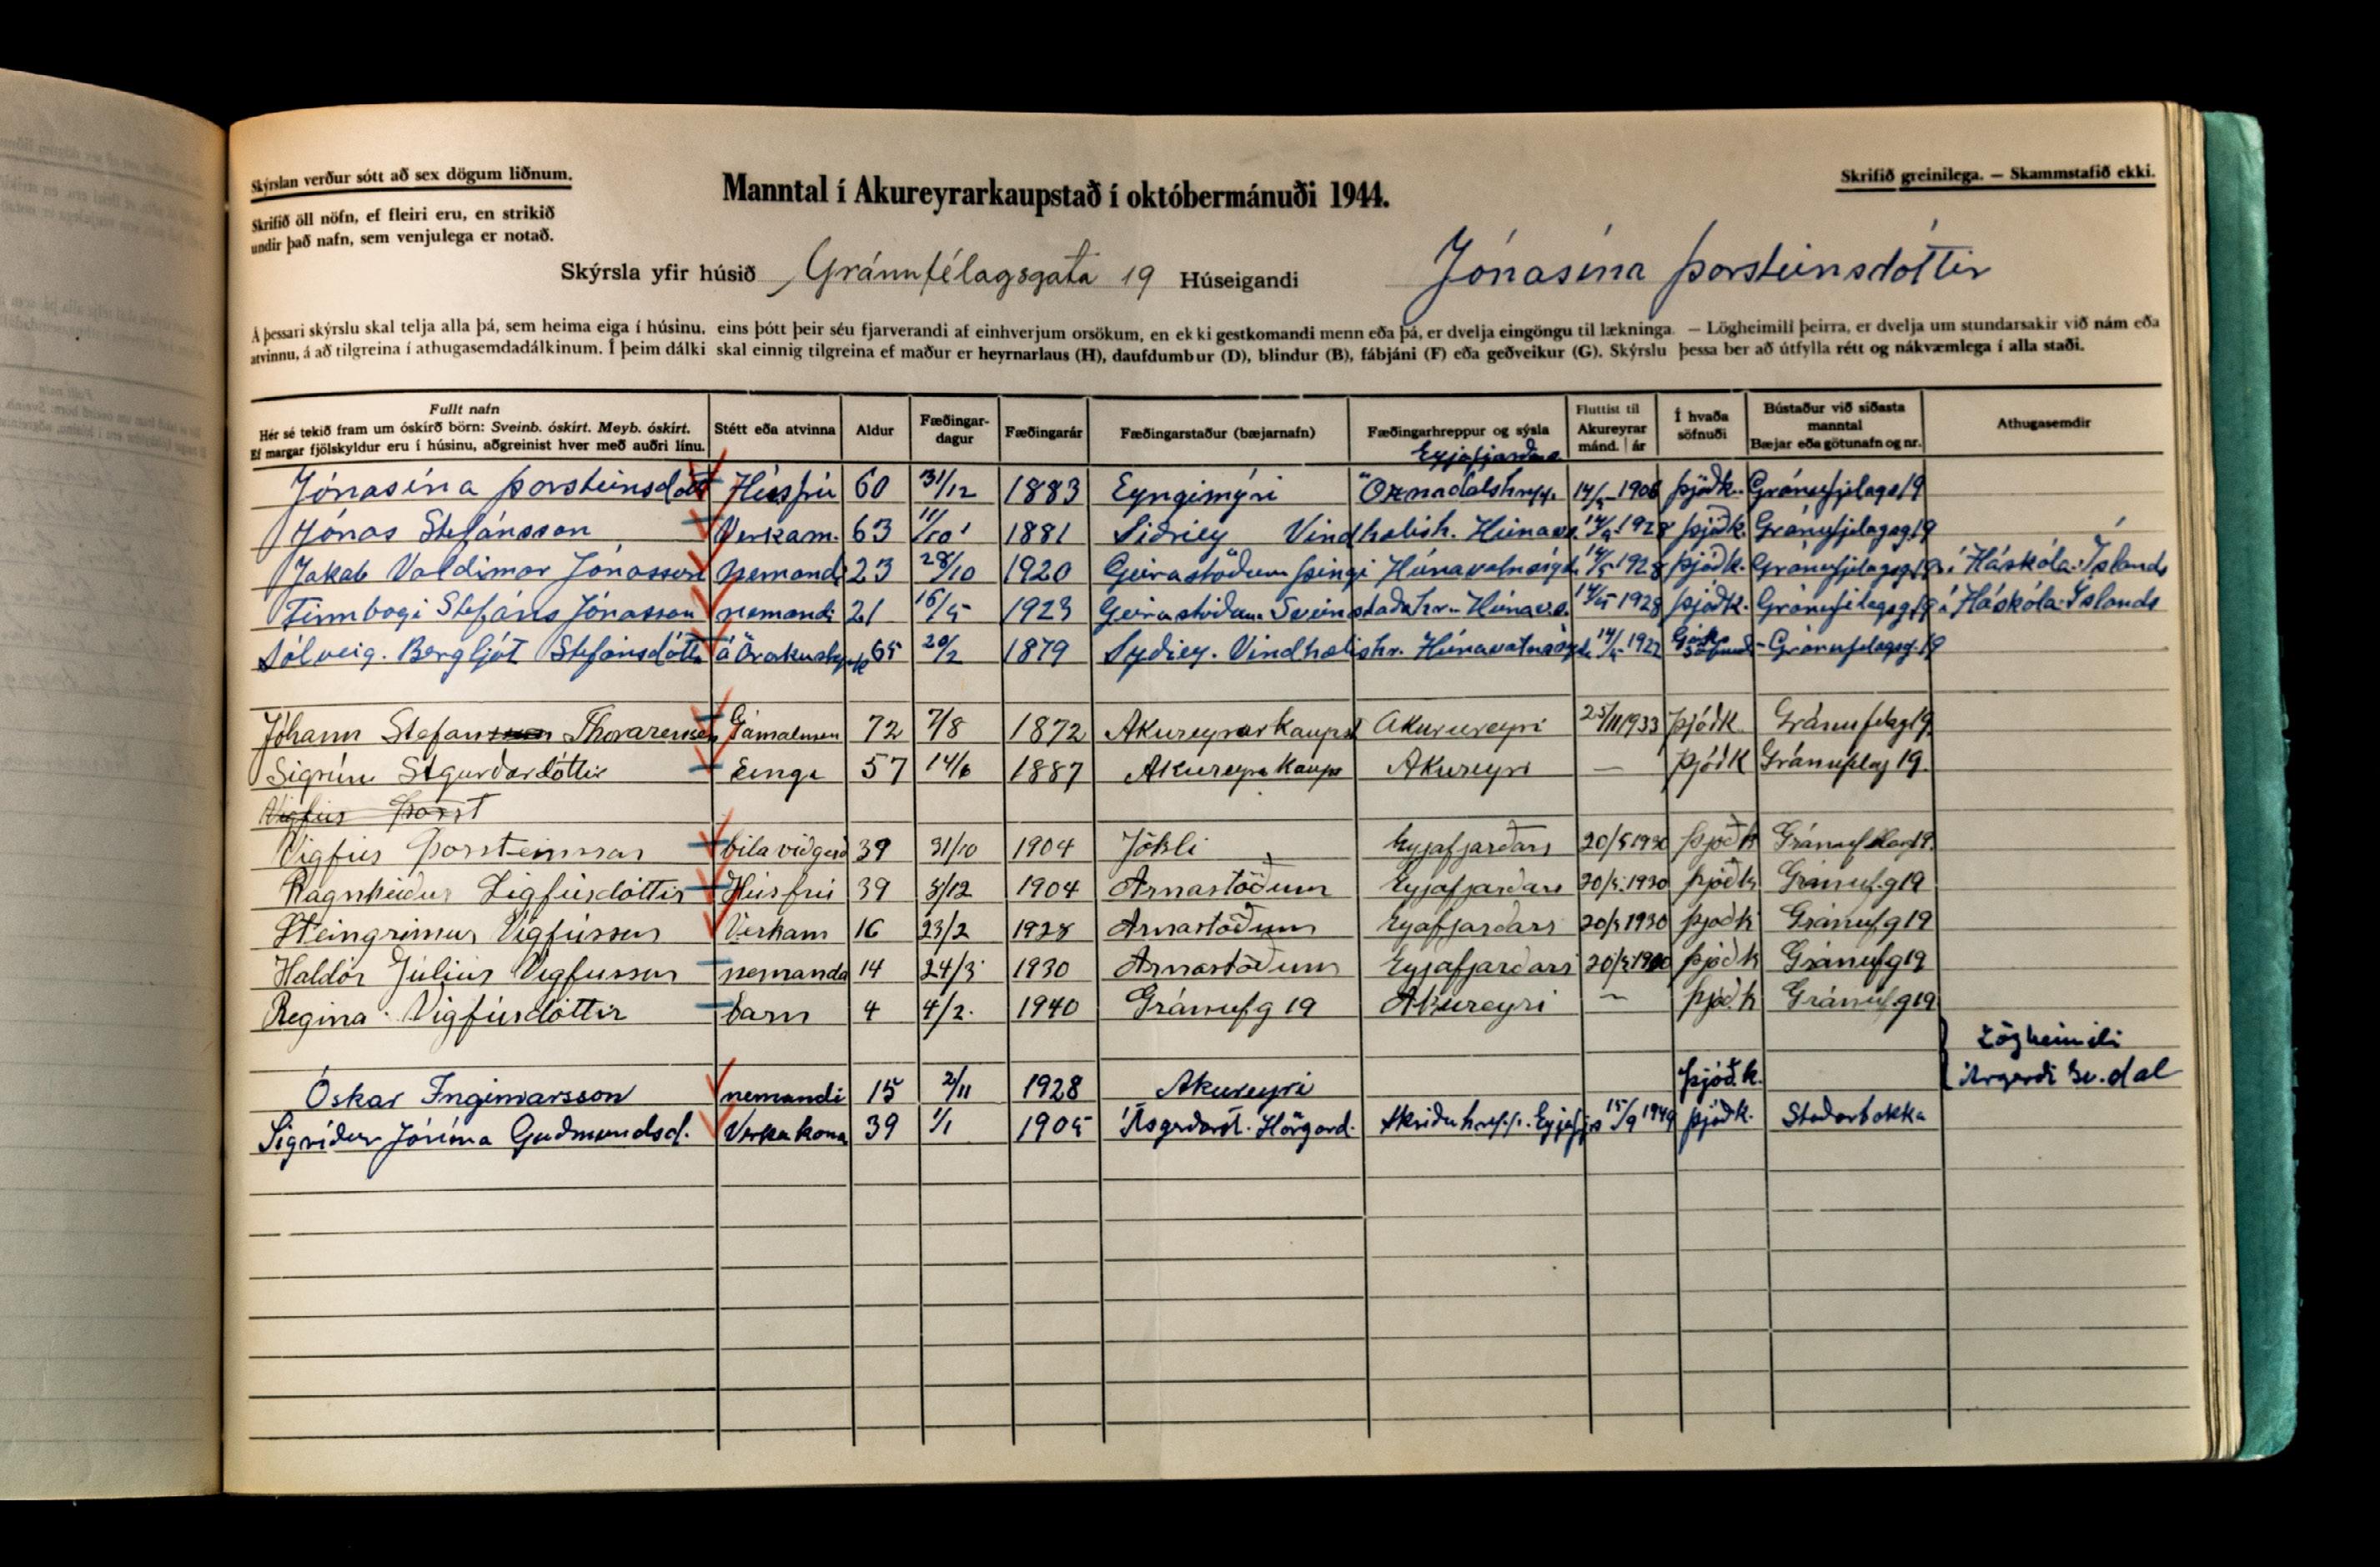 Skýrslan verður sótt að sex dögum liðnum.
Skrifið öll nöfn, ef fleiri eru, en strikið
undir það nafn, sem venjulega er notað.
Manntal í Akureyrarkaupstað í októbermánuði 1944.
Skrifið greinilega. — Skammstafið ekki.
Skýrsla yfir húsið Gránufélagsgata 19 Húseigandi Jónasína Þorsteinsdóttir
Á þessari skýrslu skal telja alla þá, sem heima eiga í húsinu, eins þótt þeir séu fjarverandi af einhverjum orsökum, en ekki gestkomandi menn eða þá, er dvelja eingöngu til lækninga. — Lögheimili þeirra, er dvelja um stundarsakir við nám eða
atvinnu, á að tilgreina í athugasemdadálkinum. Í þeim dálki skal einnig tilgreina ef maður er heyrnarlaus (H), daufdumbur (D), blindur (B), fábjáni (F) eða geðveikur (G). Skýrslu þessa ber að útfylla rétt og nákvæmlega í alla staði.
Fullt nafn
Hér sé tekið fram um óskírð börn: Sveinb. óskírt. Meyb. óskírt.
Ef margar fjölskyldur eru í húsinu, aðgreinist hver með auðri línu.
Stétt eða atvinna
Aldur
Fæðingar-
dagur
Fæðingarár
Fæðingarstaður (bæjarnafn)
Fæðingarhreppur og sýsla
Fluttist til
Akureyrar
mánd. | ár
Í hvaða
söfnuði
Bústaður við síðasta
manntal
Bæjar eða götunafn og nr.
Athugasemdir
Eyjafjarðars
Jónasína Þorsteinsdótt Húsfrú 60 31/12 1883 Eyngimýri Öxnadalshrepp. 1906 Þjóðk. Gránufjelags 19
Jónas Stefánsson Verkam. 63 11/10 1881 Siðriey Vindhælish. Húnavs. 1928 Þjóðk. Gránufjelagsg 19
Jakab Valdimar Jónasson Nemandi 23 28/10 1920 Geirastöðum Þingi Húnavatnssýsl. 1928 Þjóðk. Gránufjelagsg 19 í Háskóla Íslands
Finnbogi Stefáns Jónasson nemandi 21 16/5 1923 Geirastöðum Sveinstaðahr. Húnavs. 1928 Þjóðk. Gránufjelagsg 19 í Háskóla Íslands
Sólveig. Bergljót Stefánsdótti á 65 20/2 1879 Syðiey. Vindhælishr. Húnavatnssýsl. 1922 Gránufjelagsg. 19
Jóhann Stefansson Thorarensen Gamalmen 72 7/8 1872 Akureyrarkaupst Akureyri 25/11 1933 Þjóðk Gránufelag 19
Sigrún Sigurðardóttir Einge 57 14/6 1887 Akureyra kaups Akureyri — Þjóðk Gránufelag 19.
Vigfús Þorst
Vigfús Þorsteinsson bílaviðgerð 39 31/10 1904 Jökli Eyjafjarðars 20/5 1930 Þjóðk Gránuf 19
Ragnheiður Sigfúsdóttir Húsfrú 39 8/12 1904 Arnastöðum Eyjafjarðars 20/5 1930 Þjóðk Gránuf.g 19
Steingrímur Vigfússon Verkam 16 23/2 1928 Arnastöðum Eyjafjarðars 20/5 1930 Þjóðk Gránuf.g 19
Haldór Júlíus Vigfússon nemanda 14 24/3 1930 Arnastöðum Eyjafjarðars 20/5 1930 Þjóðk Gránuf.g 19
Regina Vigfúsdóttir barn 4 4/2. 1940 Gránuf.g 19 Akureyri — Þjóðk Gránuf.g 19
Lögheimili
Óskar Ingimarsson nemandi 15 2/11 1928 Akureyri Þjóðk. Árgerði Sv. dal
Sigríður Jónína Guðmundsd. Verkakona 39 1/1 1905 Ásgerðarst. Hörgard. Skriðuhrepp. Eyjafjs 15/9 1949 Þjóðk. Staðarbakka